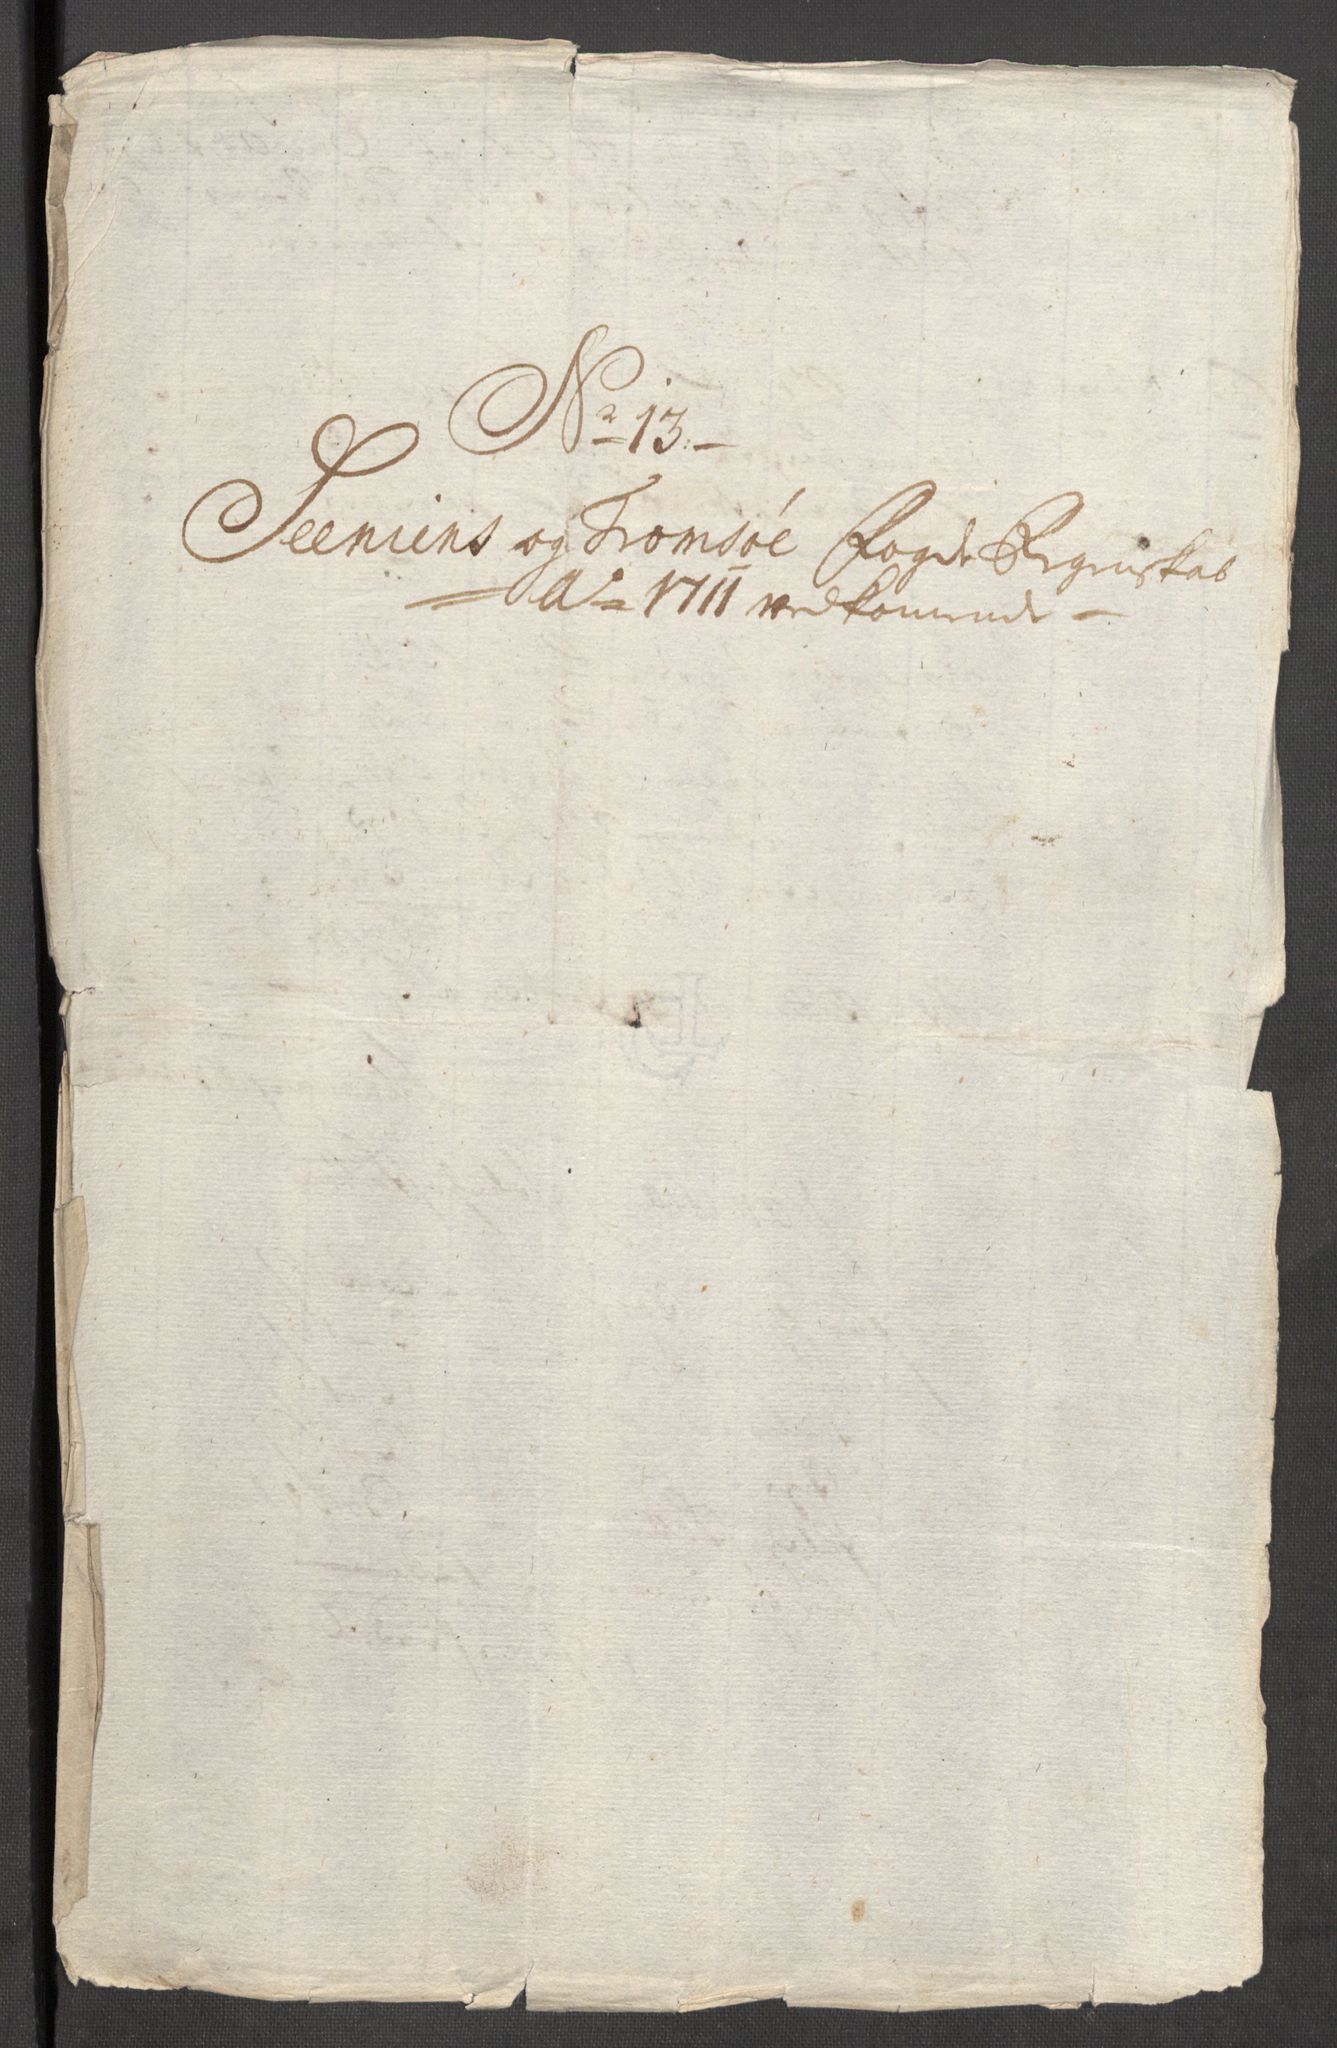 No 13.
Seeniens og Tromsøe Fogde Regenskab
Ao 1711 vedkommende